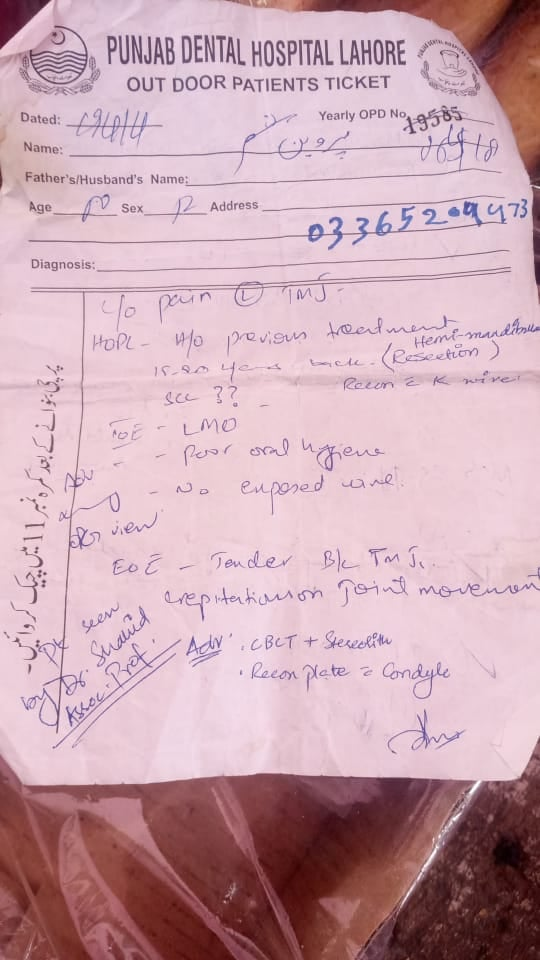 PUNJAB DENTAL HOSPITAL LAHORE
OUT DOOR PATIENTS TICKET
Dated:
Yearly OPD No. 19585
Name: پروین
Father's/Husband's Name:
Age Sex Address
03365209473
Diagnosis:
C/o pain (L) TMJ.
HOPC - H/o previous treatment
15-20 years back. (Hemi-mandibular Resection)
SCC ?? Recon c K wire.
IOE - LMO
- Poor oral hygiene
- No exposed wire.
Adv
view
EOE - Tender B/L TMJ.
crepitation on Joint movement
Pt seen
by Dr. Shahid
Assoc. Prof.
Adv: • CBCT + Stereolith
• Recon plate c Condyle
پرچی بنوانے کے بعد کمرہ نمبر 11 میں چیک کروائیں۔